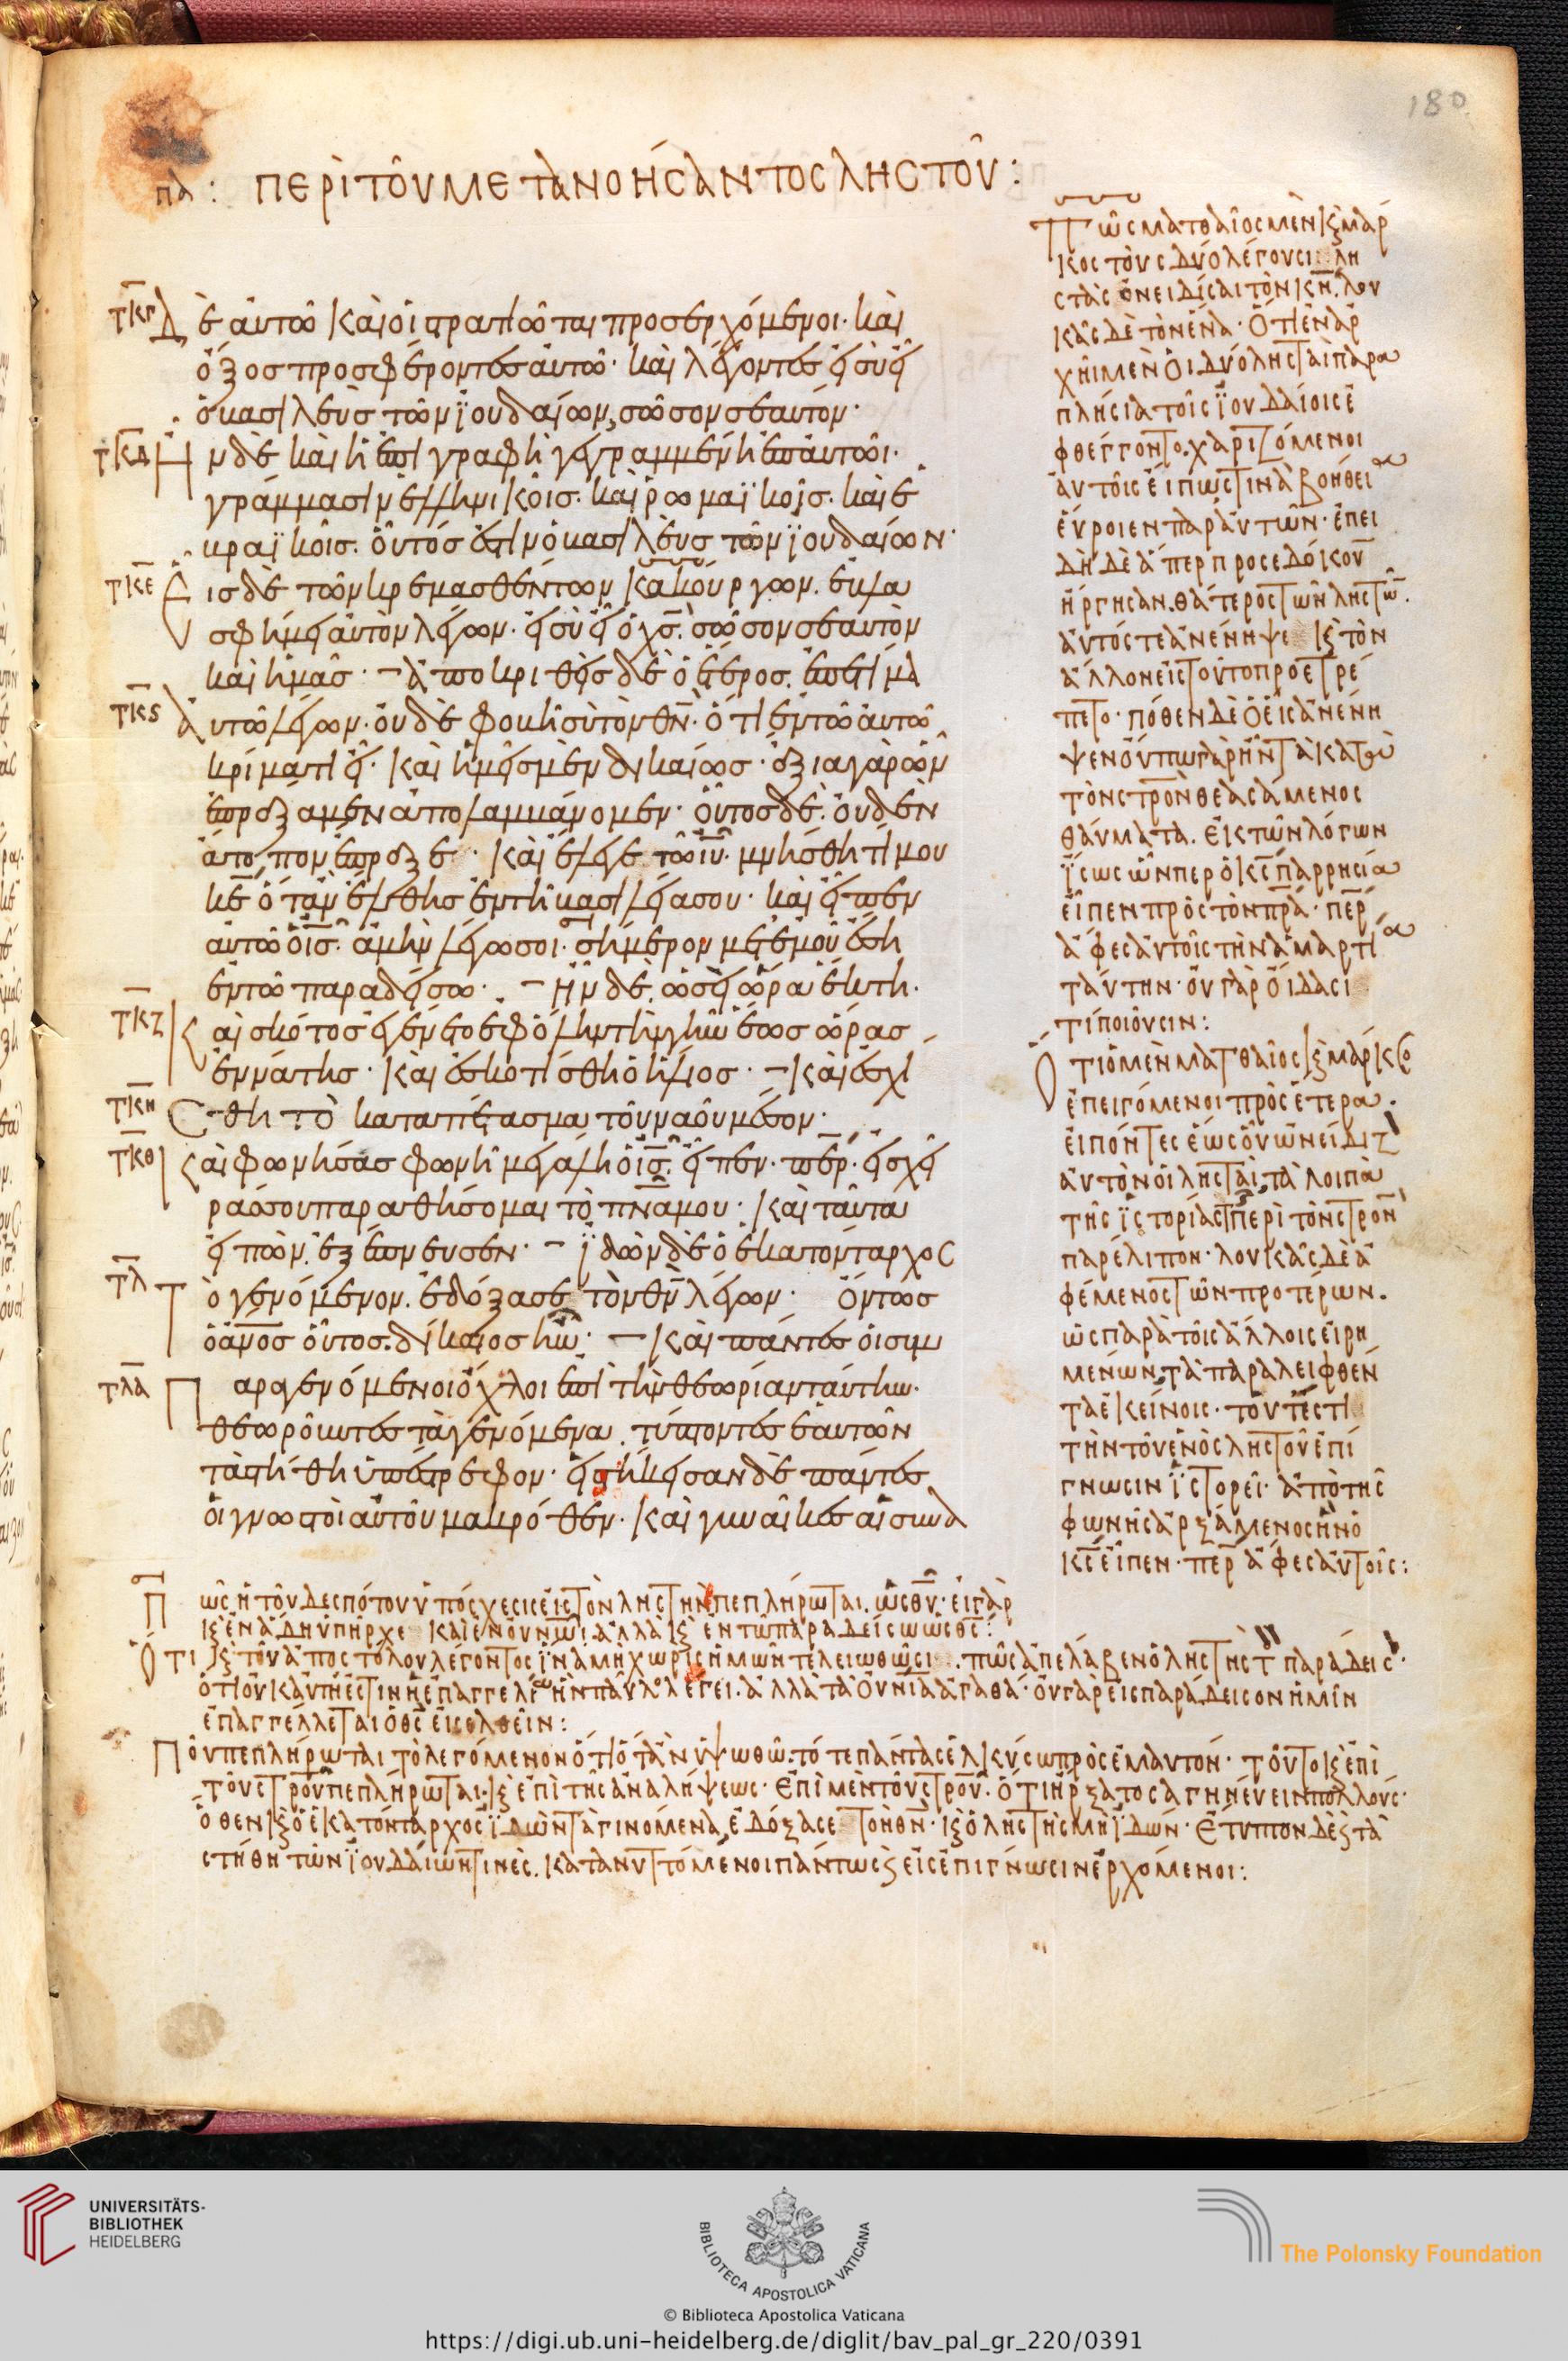 180
πα: ΠΕΡῚ ΤΟΥ̂ ΜΕΤΑΝΟΉCΑΝΤΟC ΛΗCΤΟΥ̂:
τκγ δὲ αὐτῶ καὶ οἱ στρατιῶται προσερχόμενοι· καὶ
ὄξος προσφέροντες αὐτῶ· καὶ λέγοντες εἰ σὺ εἶ
ὁ βασιλεὺς τῶν ἰουδαίων, σῶσον σεαυτόν·
τκδ Ἦν δὲ καὶ ἡ ἐπιγραφὴ γεγραμμένη ἐπ αὐτῶι·
γράμμασιν ἑλληνικοῖς· καὶ ῥωμαϊκοῖς· καὶ ἑ
βραϊκοῖς· οὗτός ἐστιν ὁ βασιλεὺς τῶν ἰουδαίων·
τκε Εἷς δὲ τῶν κρεμασθέντων κακούργων. ἐβλα
σφήμει αὐτὸν λέγων· εἰ σὺ εἶ ὁ χς. σῶσον σεαυτὸν
καὶ ἡμᾶς· ἀποκριθεὶς δὲ ὁ ἕτερος. ἐπετίμα
τκς αὐτῶ λέγων· οὐδὲ φοβῆ σὺ τὸν θν· ὅτι ἐν τῶ αὐτῶ
κρίματι εἶ· καὶ ἡμεῖς μὲν δικαίως· ἄξια γὰρ ὧν
ἐπράξαμεν ἀπολαμβάνομεν· οὗτος δὲ. οὐδὲν
ἄτοπον ἔπραξε· καὶ ἔλεγε τῶ ιυ· μνήσθητί μου
κε ὅταν ἔλθης ἐν τῆ βασιλεία σου· καὶ εἶπεν
αὐτῶ ὁ ις. ἀμὴν λέγω σοι· σήμερον μετ ἐμοῦ ἔση
ἐν τῶ παραδείσω· ἦν δὲ. ὡσεὶ ὥρα ἕκτη·
τκζ καὶ σκότος ἐγένετο ἐφ ὅλην τὴν γῆν ἕως ὥρας
ἐννάτης· καὶ ἐσκοτίσθη ὁ ἥλιος· καὶ ἐσχί
τκη Cθη τὸ καταπέτασμα τοῦ ναοῦ μέσον·
τκθ καὶ φωνήσας φωνῆ μεγάλη ὁ ις. εἶπεν· περ· εἰς χεῖ
ρας σου παραθήσομαι τὸ πνα μου· καὶ ταῦτα
εἰπὼν. ἐξέπνευσεν· ἰδὼν δὲ ὁ ἑκατόνταρχος
τλ Τὸ γενόμενον. ἐδόξασε τὸν θν λέγων· Ὄντως
ὁ ανος οὗτος. δίκαιος ἦν· καὶ πάντες οἱ συμ
τλα Παραγενόμενοι ὄχλοι ἐπὶ τὴν θεωρίαν ταύτην·
θεωροῦντες τὰ γενόμενα. τύπτοντες ἑαυτῶν
τὰ στήθη ὑπέστρεφον· εἱστήκεισαν δὲ πάντες
οἱ γνωστοὶ αὐτοῦ μακρόθεν· καὶ γυναῖκες αἱ συνα
Πῶς ματθαῖος μὲν κ μάρ
κος τοὺς δύο λέγουσι λη
στὰς ὀνειδίσαι τὸν κν. λου
κᾶς δὲ τὸν ἕνα· Ὅτι ἐν ἀρ
χῆι μὲν οἱ δύο λησταὶ παρα
πλήσια τοῖς ἰουδαίοις ἐ
φθέγγοντο. χαριζόμενοι
αὐτοῖς εἴ πως τινὰ βοήθεια
εὕροιεν παρ αὐτῶν· ἐπει
δὴ δὲ ἅπερ προσεδόκουν
ἤργησαν. θάτερος τῶν ληστῶν.
αὐτός τε ἀνένηψε κ τὸν
ἄλλον εἰς τοῦτο προετρέ
πετο· πόθεν δὲ ὁ εἷς ἀνένη
ψεν οὔπω γὰρ ἦν τὰ κατὰ
τὸν στρον θεασάμενος
θαύματα. Ἐκ τῶν λόγων
ἴσως ὧνπερ ὁ κς παρρησία
εἶπεν πρὸς τὸν πρα· περ
ἄφες αὐτοῖς τὴν ἁμαρτία
ταύτην· οὐ γὰρ οἴδασι
τί ποιοῦσιν:
Ὅτι ὁ μὲν ματθαῖος κ μάρκος
ἐπειγόμενοι πρὸς ἕτερα.
εἰπόντες ἕως οὗ ὠνείδιζ
αὐτὸν οἱ λησταὶ, τὰ λοιπὰ
τῆς ἱστορίας περὶ τὸν στρον
παρέλιπον· λουκᾶς δὲ ἀ
φέμενος τῶν προτέρων.
ὡς παρὰ τοῖς ἄλλοις εἰρη
μένων, τὰ παραλειφθέν
τα ἐκείνοις· τουτέστι
τὴν τοῦ ἑνὸς ληστοῦ ἐπί
γνωσιν ἱστορεῖ· ἀπὸ τῆς
φωνῆς ἀρξάμενος ἣν ὁ
κς εἶπεν· περ ἄφες αὐτοῖς:
Πῶς ἡ τοῦ δεσπότου ὑπόσχεσις εἰς τὸν ληστὴν πεπλήρωται. ὡς θυ· εἰ γὰρ
κ ἐν ἅδη ὑπῆρχε καὶ ἐν οὐνῶι. ἀλλὰ κ ἐν τῶ παραδείσω ὡς θς:
Ὅτι κ τοῦ ἀποστόλου λέγοντος ἵνα μὴ χωρὶς ἡμῶν τελειωθῶσι. πῶς ἀπέλαβεν ὁ ληστὴς τ παράδεισ·
ὅτι οὐκ αὕτη ἐστιν ἡ ἐπαγγελία ἣν παῦλος λέγει. ἀλλὰ τὰ οὐνια ἀγαθά· οὐ γὰρ εἰς παράδεισον ἡμῖν
ἐπαγγέλλεται ὁ θς εἰσελθεῖν:
Ποῦ πεπλήρωται τὸ λεγόμενον ὅτι ὅταν ὑψωθῶ. τότε πάντας ἑλκύσω πρὸς ἐμαυτόν· τοῦτο κ ἐπὶ
τοῦ στρου πεπλήρωται. κ ἐπὶ τῆς ἀναλήψεως· Ἐπὶ μὲν τοῦ στρου. ὅτι ἤρξατο σαγηνεύειν πολλούς·
ὅθεν κ ὁ ἑκατόνταρχος ἰδὼν τὰ γινόμενα, ἐδόξασε τὸν θν· κ ὁ ληστὴς μὴ ἰδών· Ἔτυπτον δὲ κ τὰ
στήθη τῶν ἰουδαίων τινές. κατανυττόμενοι πάντως κ εἰς ἐπίγνωσιν ἐρχόμενοι:
UNIVERSITÄTS-
BIBLIOTHEK
HEIDELBERG
BIBLIOTECA APOSTOLICA VATICANA
The Polonsky Foundation
© Biblioteca Apostolica Vaticana
https://digi.ub.uni-heidelberg.de/diglit/bav_pal_gr_220/0391